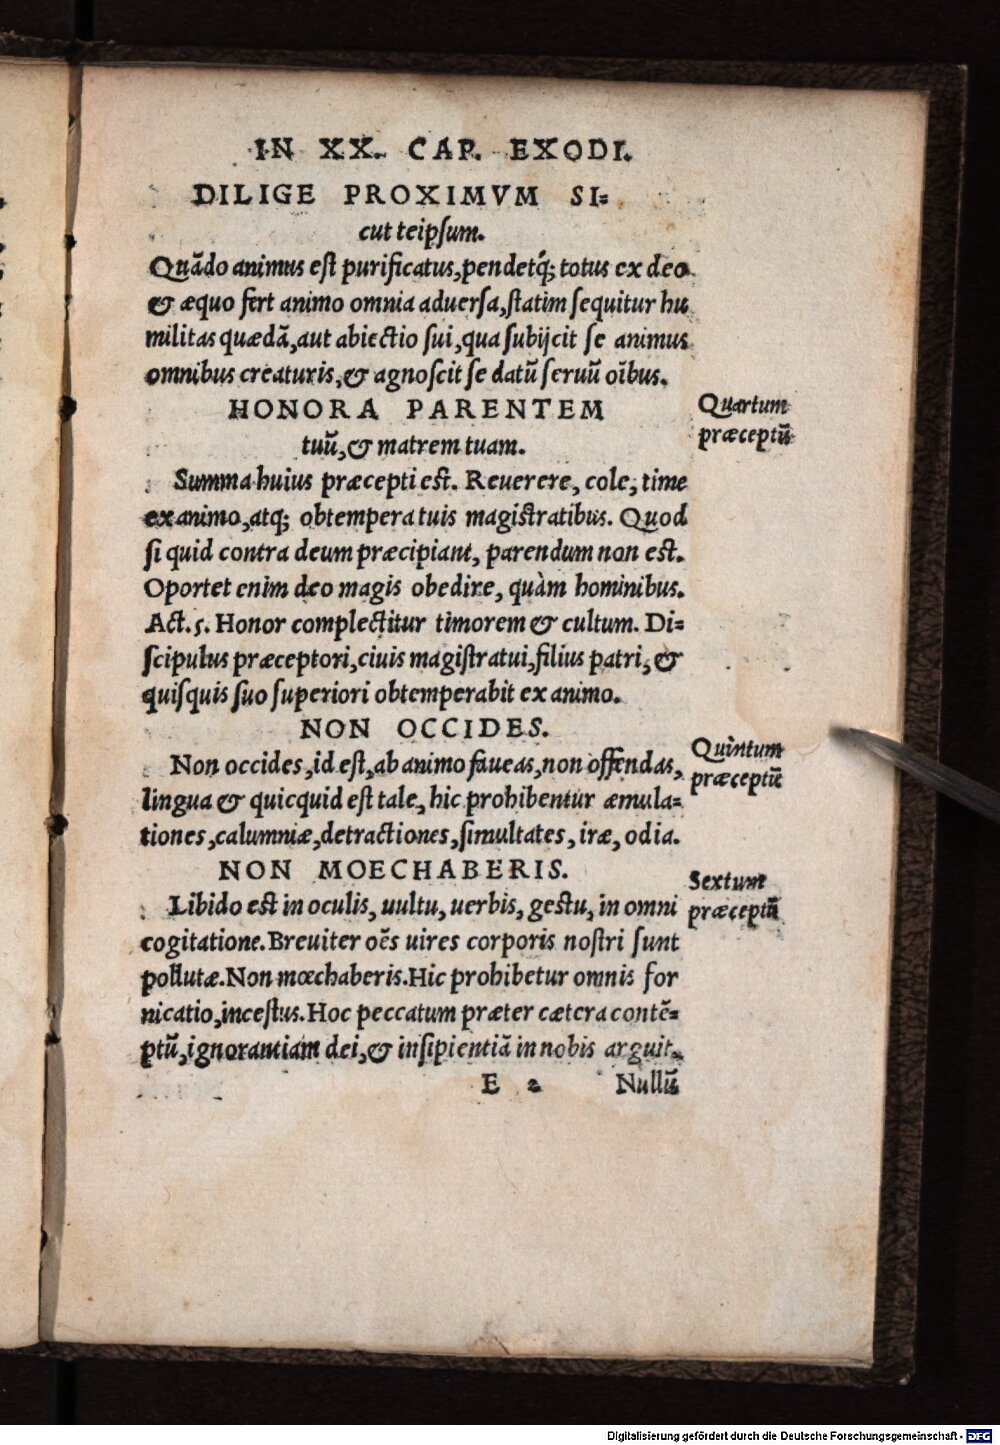 IN XX. CAP. EXODI.
DILIGE PROXIMVM SI=
cut teipſum.
Quãdo animus eſt purificatus, pendetq́; totus ex deo
& æquo fert animo omnia aduerſa, ſtatim ſequitur hu
militas quædã, aut abiectio ſui, qua ſubijcit ſe animus
omnibus creaturis, & agnoſcit ſe datũ ſeruũ oĩbus.
HONORA PARENTEM
tuũ, & matrem tuam.
Quartum
præceptũ
Summa huius præcepti est. Reuerere, cole, time
ex animo, atq; obtempera tuis magistratibus. Quod
ſi quid contra deum præcipiant, parendum non est.
Oportet enim deo magis obedire, quàm hominibus.
Act. 5. Honor complectitur timorem & cultum. Di=
ſcipulus præceptori, ciuis magiſtratui, filius patri, &
quiſquis ſuo ſuperiori obtemperabit ex animo.
NON OCCIDES.
Quintum
præceptũ
Non occides, id eſt, ab animo faueas, non offendas,
lingua & quicquid est tale, hic prohibentur æmula=
tiones, calumniæ, detractiones, ſimultates, iræ, odia.
NON MOECHABERIS.
Sextum
præceptũ
Libido est in oculis, uultu, uerbis, gestu, in omni
cogitatione. Breuiter oẽs uires corporis noſtri ſunt
pollutæ. Non mœchaberis. Hic prohibetur omnis for
nicatio, inceſtus. Hoc peccatum præter cætera contẽ=
ptũ, ignorantiam dei, & inſipientiã in nobis arguit.
E 2 Nullũ
Digitalisierung gefördert durch die Deutsche Forschungsgemeinschaft - DFG